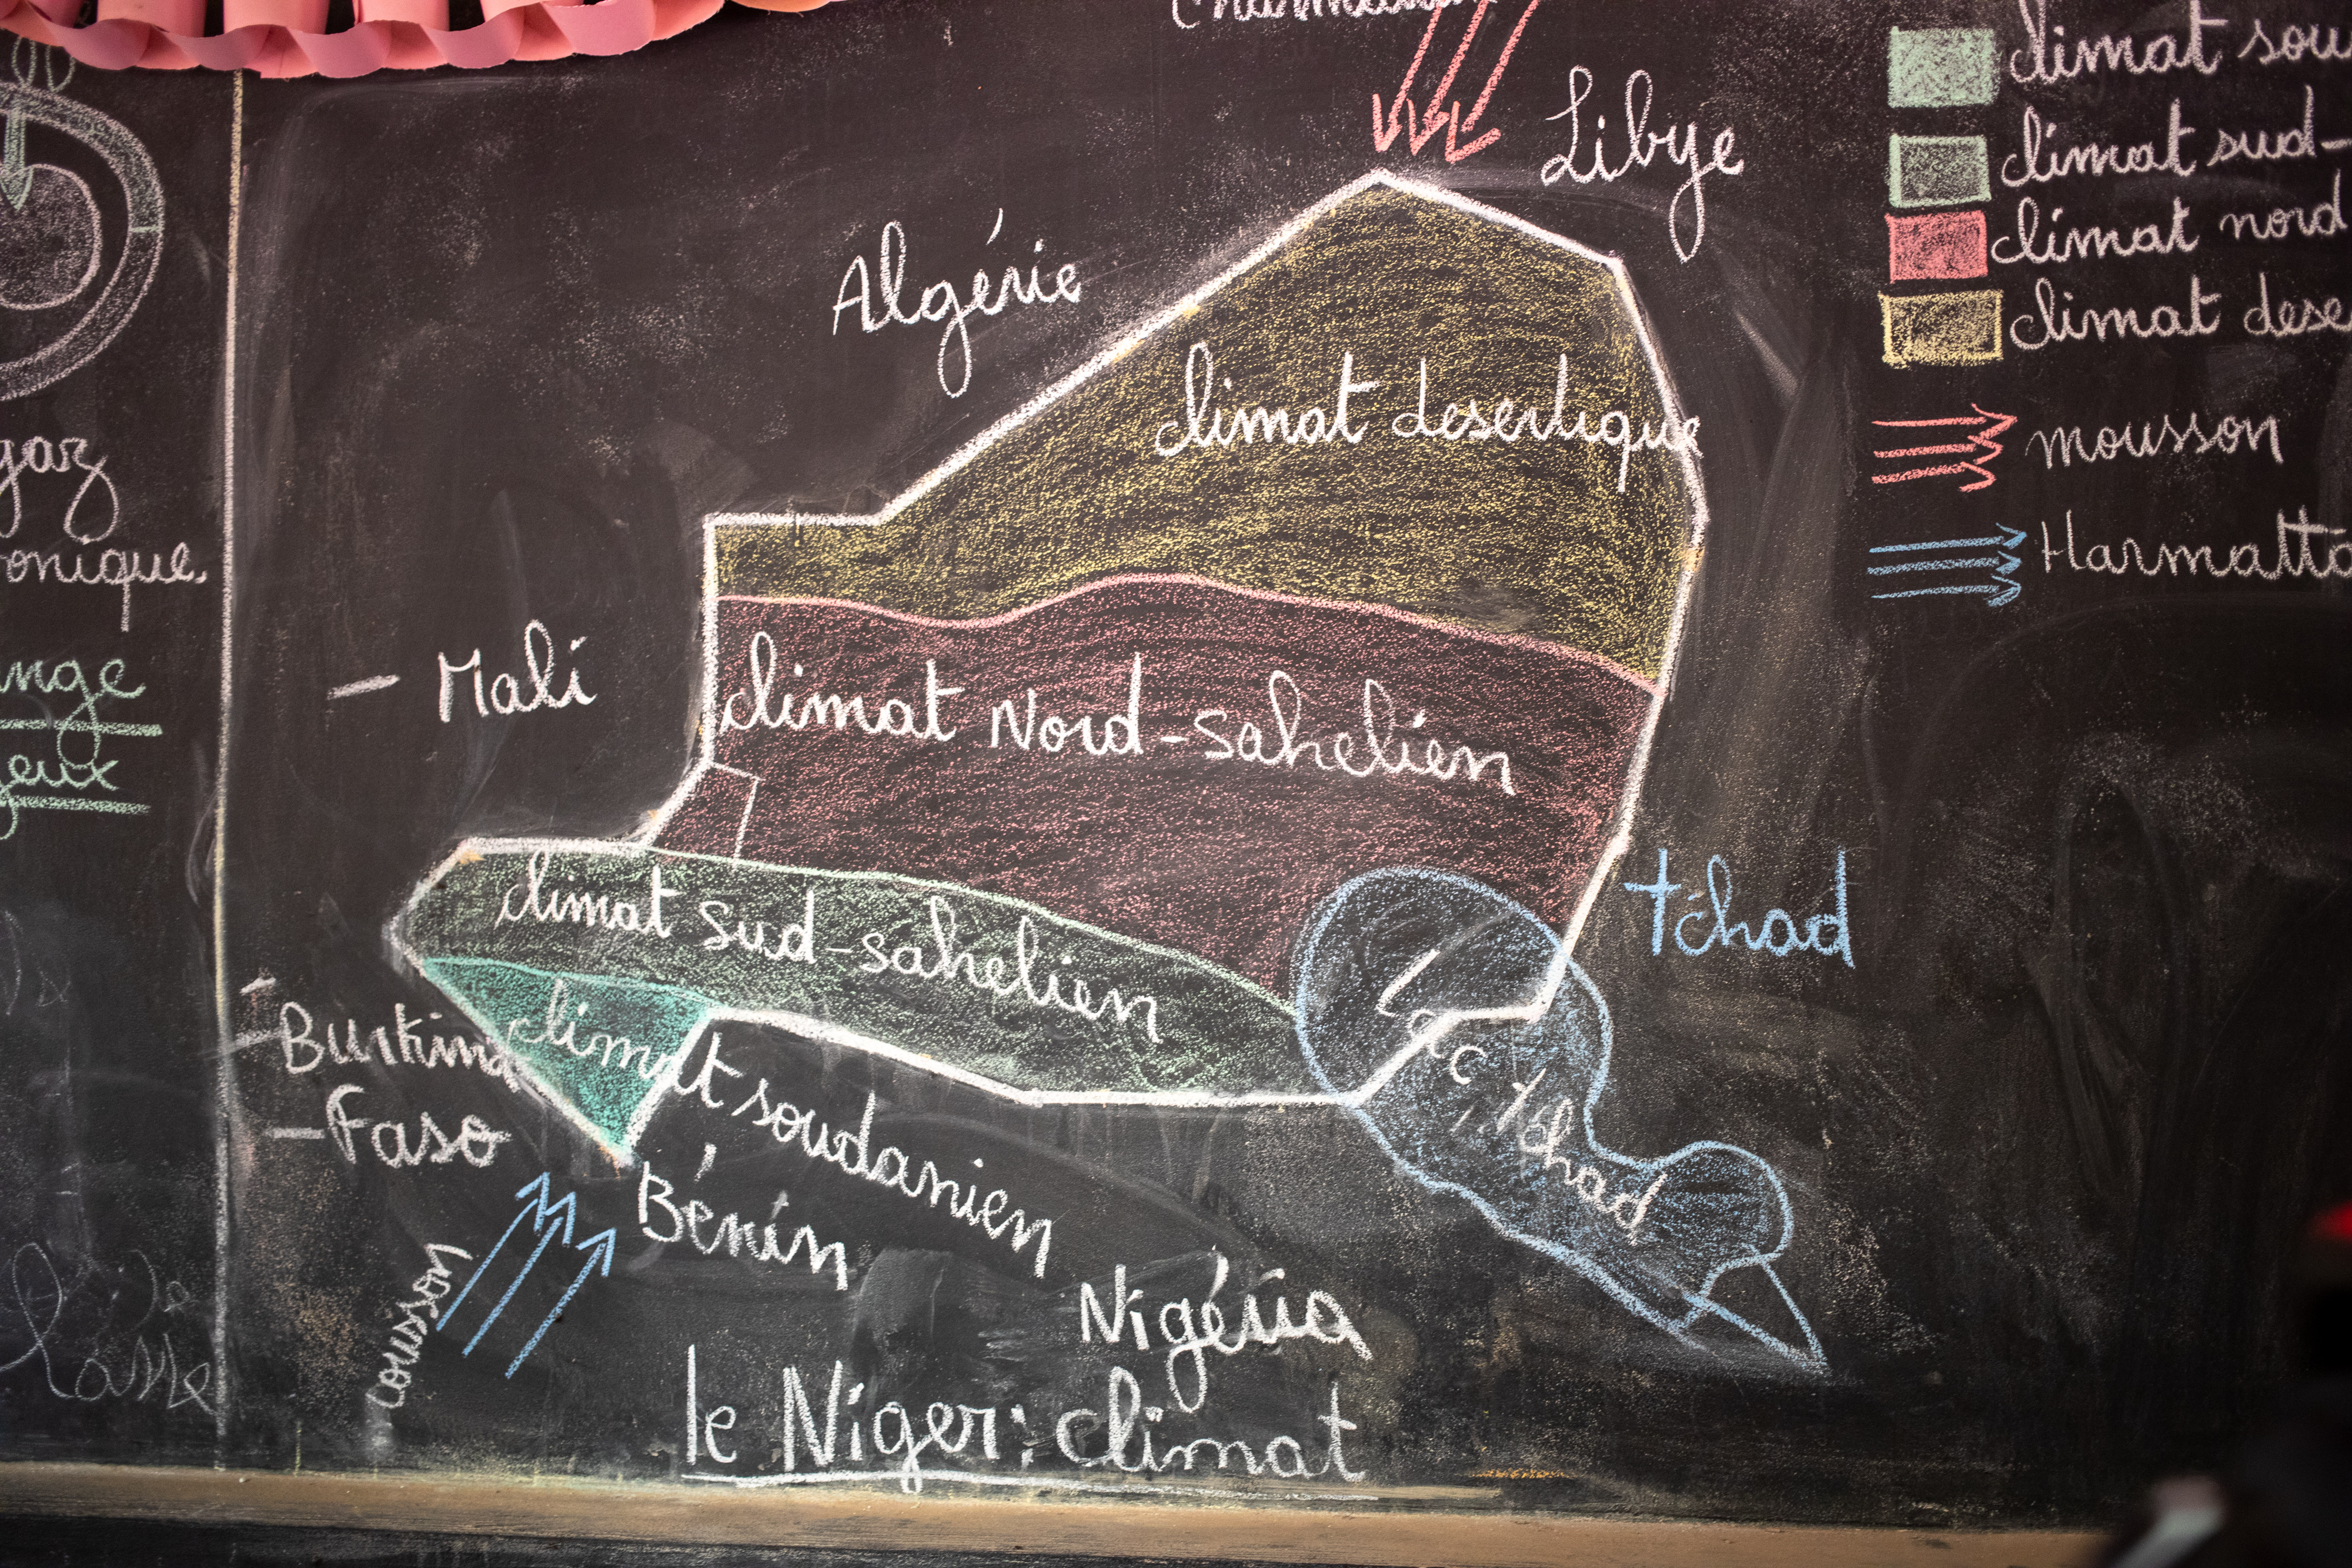 gaz
onique.
ange
jeux
Libye
Algérie
climat desertique
Mali
climat Nord-sahelien
climat sud-sahelien
tchad
Burkina
Faso
climat soudanien
Lac tchad
Bénin
Nigéria
le Niger: climat
climat sou
climat sud-
climat nord
climat dese
mousson
Harmatta